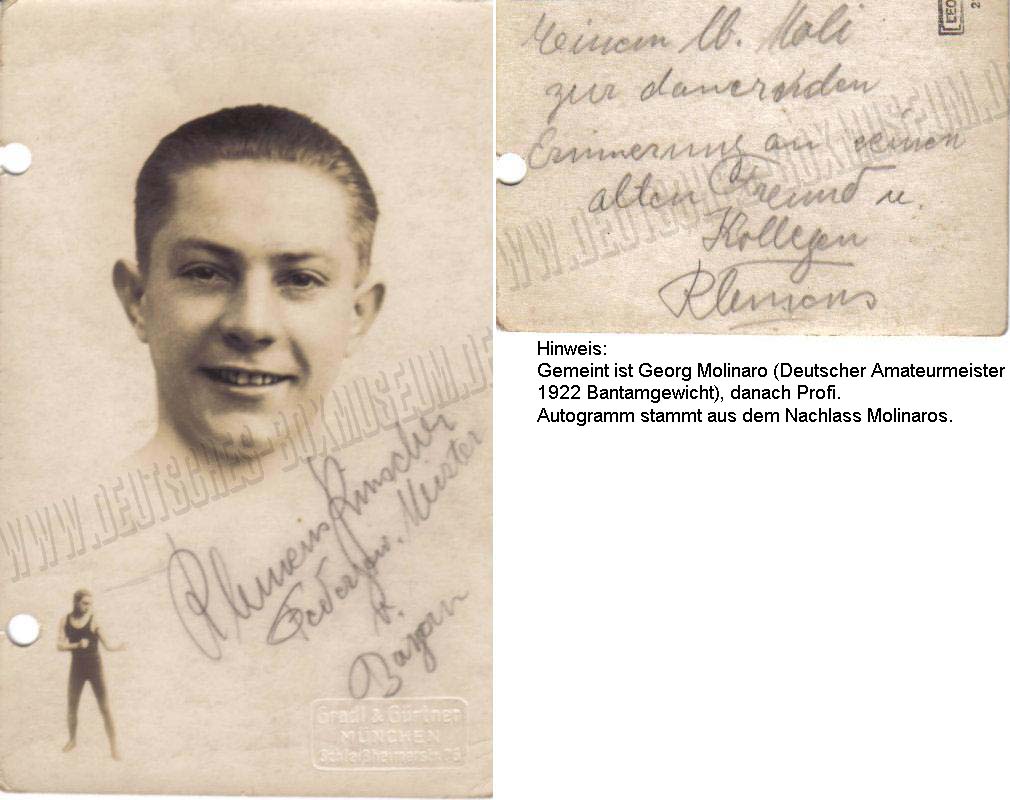 WWW.DEUTSCHES-BOXMUSEUM.DE
Klemens
Federgew. Meister
v.
Bayern
Gradl & Gürtner
MÜNCHEN
Schleißheimerstr. 76
Meinem lb. Moli
zur dauernden
Erinnerung an seinen
alten Freund u.
Kollegen
Klemens
LEO
WWW.DEUTSCHES-BOXMUSEUM.DE
Hinweis:
Gemeint ist Georg Molinaro (Deutscher Amateurmeister
1922 Bantamgewicht), danach Profi.
Autogramm stammt aus dem Nachlass Molinaros.